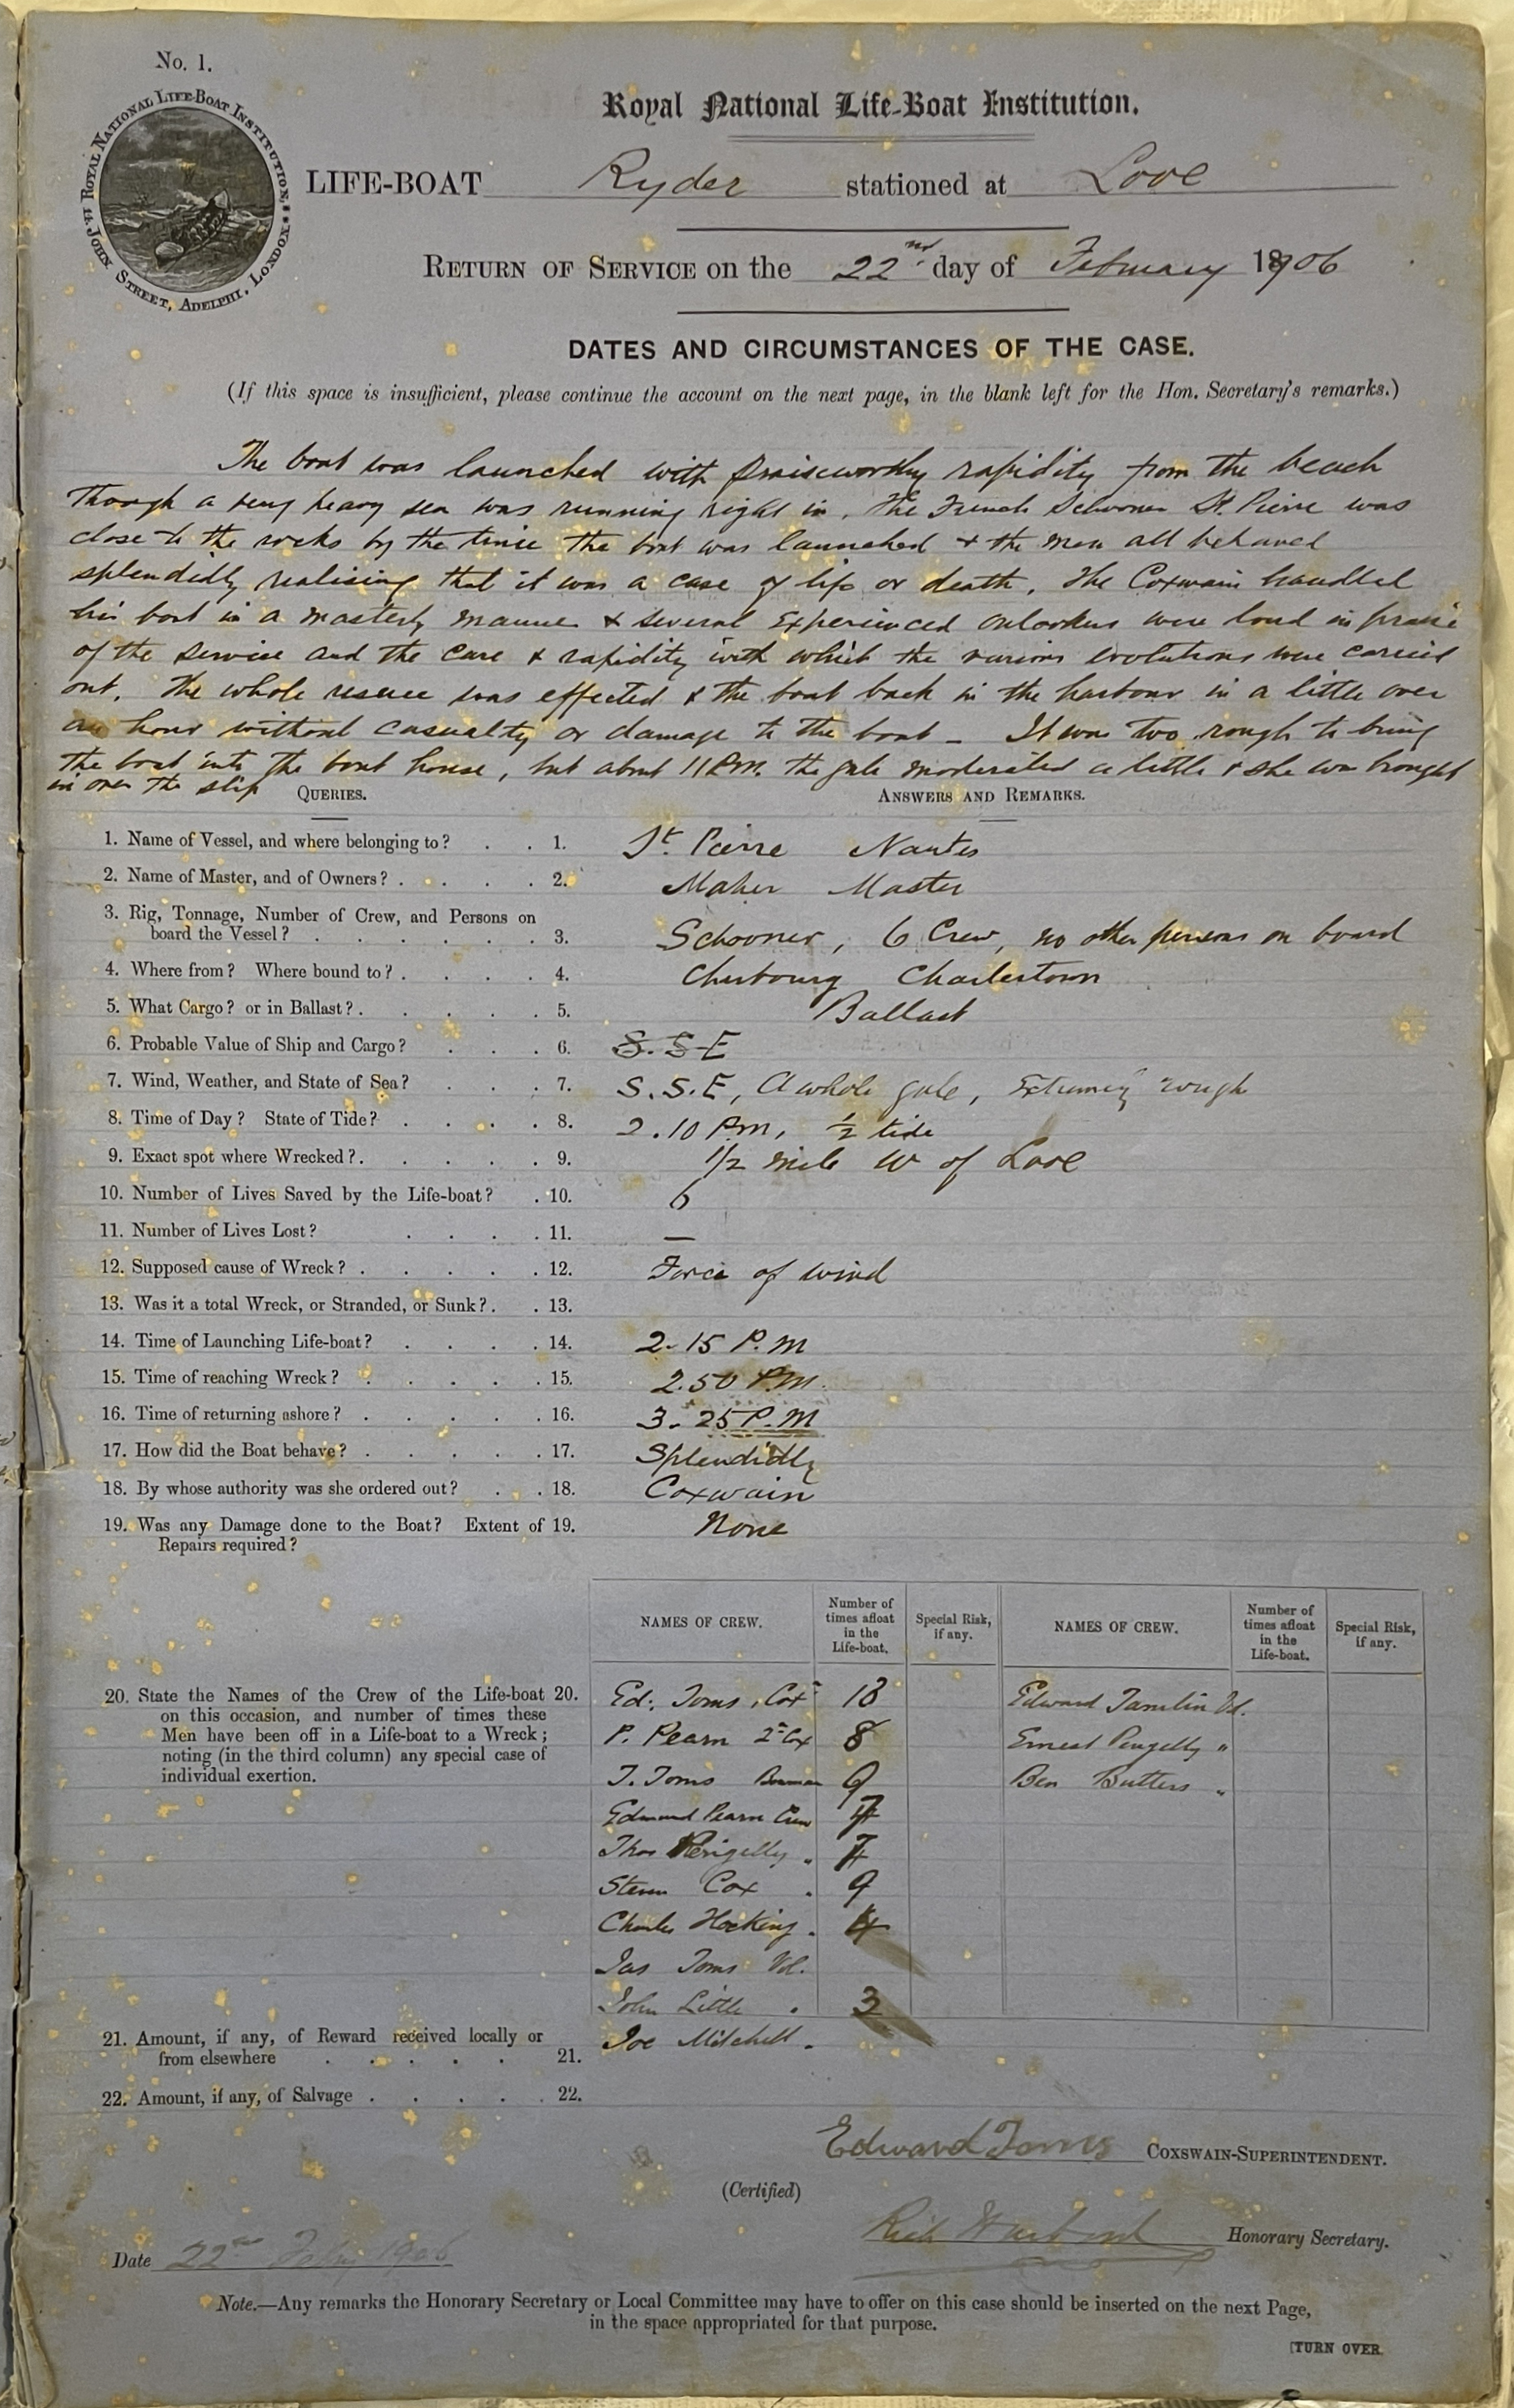 No. 1.
ROYAL NATIONAL LIFE-BOAT INSTITUTION, 14. JOHN STREET, ADELPHI, LONDON.
Royal National Life-Boat Institution.
LIFE-BOAT Ryder stationed at Looe
RETURN OF SERVICE on the 22nd day of February 1906
DATES AND CIRCUMSTANCES OF THE CASE.
(If this space is insufficient, please continue the account on the next page, in the blank left for the Hon. Secretary's remarks.)
The boat was launched with praiseworthy rapidity from the beach
though a very heavy sea was running right in. The French Schooner St. Pierre was
close to the rocks by the time the boat was launched & the men all behaved
splendidly realising that it was a case of life or death. The Coxwain handled
his boat in a masterly manner & several Experienced onlookers were loud in praise
of the service and the care & rapidity with which the various evolutions were carried
out. The whole rescue was effected & the boat back in the harbour in a little over
an hour without casualty or damage to the boat - It was too rough to bring
the boat into the boat house, but about 11 P.m. the gale moderated a little & she was brought
in over the slip
QUERIES. ANSWERS AND REMARKS.
1. Name of Vessel, and where belonging to? 1. St. Pierre Nantes
2. Name of Master, and of Owners? 2. Maher Master
3. Rig, Tonnage, Number of Crew, and Persons on
board the Vessel? 3. Schooner, 6 Crew, no other persons on board
4. Where from? Where bound to? 4. Cherbourg Charlestown
5. What Cargo? or in Ballast? 5. Ballast
6. Probable Value of Ship and Cargo? 6. S.S.E
7. Wind, Weather, and State of Sea? 7. S.S.E, A whole gale, Extremely rough
8. Time of Day? State of Tide? 8. 2.10 P.m, ½ tide
9. Exact spot where Wrecked? 9. 1/2 mile W of Looe
10. Number of Lives Saved by the Life-boat? 10. 6
11. Number of Lives Lost? 11. —
12. Supposed cause of Wreck? 12. Force of wind
13. Was it a total Wreck, or Stranded, or Sunk? 13.
14. Time of Launching Life-boat? 14. 2-15 P.M
15. Time of reaching Wreck? 15. 2.50 P.M.
16. Time of returning ashore? 16. 3-25 P.M
17. How did the Boat behave? 17. Splendidly
18. By whose authority was she ordered out? 18. Coxwain
19. Was any Damage done to the Boat? Extent of 19. None
Repairs required?
NAMES OF CREW. Number of times afloat in the Life-boat. Special Risk, if any. NAMES OF CREW. Number of times afloat in the Life-boat. Special Risk, if any.
20. State the Names of the Crew of the Life-boat 20.
on this occasion, and number of times these
Men have been off in a Life-boat to a Wreck;
noting (in the third column) any special case of
individual exertion.
Ed: Toms, Coxn 18
P. Pearn 2nd Cox 8
T. Toms Bowman 9
Edmund Pearn Crew
Thos Pengelly " 7
Steven Cox " 9
Charles Hocking " 4
Jas Toms Vol.
John Little " 3
Joe Mitchell "
Edward Tamlin Vol.
Ernest Pengelly "
Ben Butters "
21. Amount, if any, of Reward received locally or
from elsewhere 21.
22. Amount, if any, of Salvage 22.
Edward Toms COXSWAIN-SUPERINTENDENT.
(Certified)
Honorary Secretary.
Date 22nd Feby 1906
Note.—Any remarks the Honorary Secretary or Local Committee may have to offer on this case should be inserted on the next Page,
in the space appropriated for that purpose.
[TURN OVER